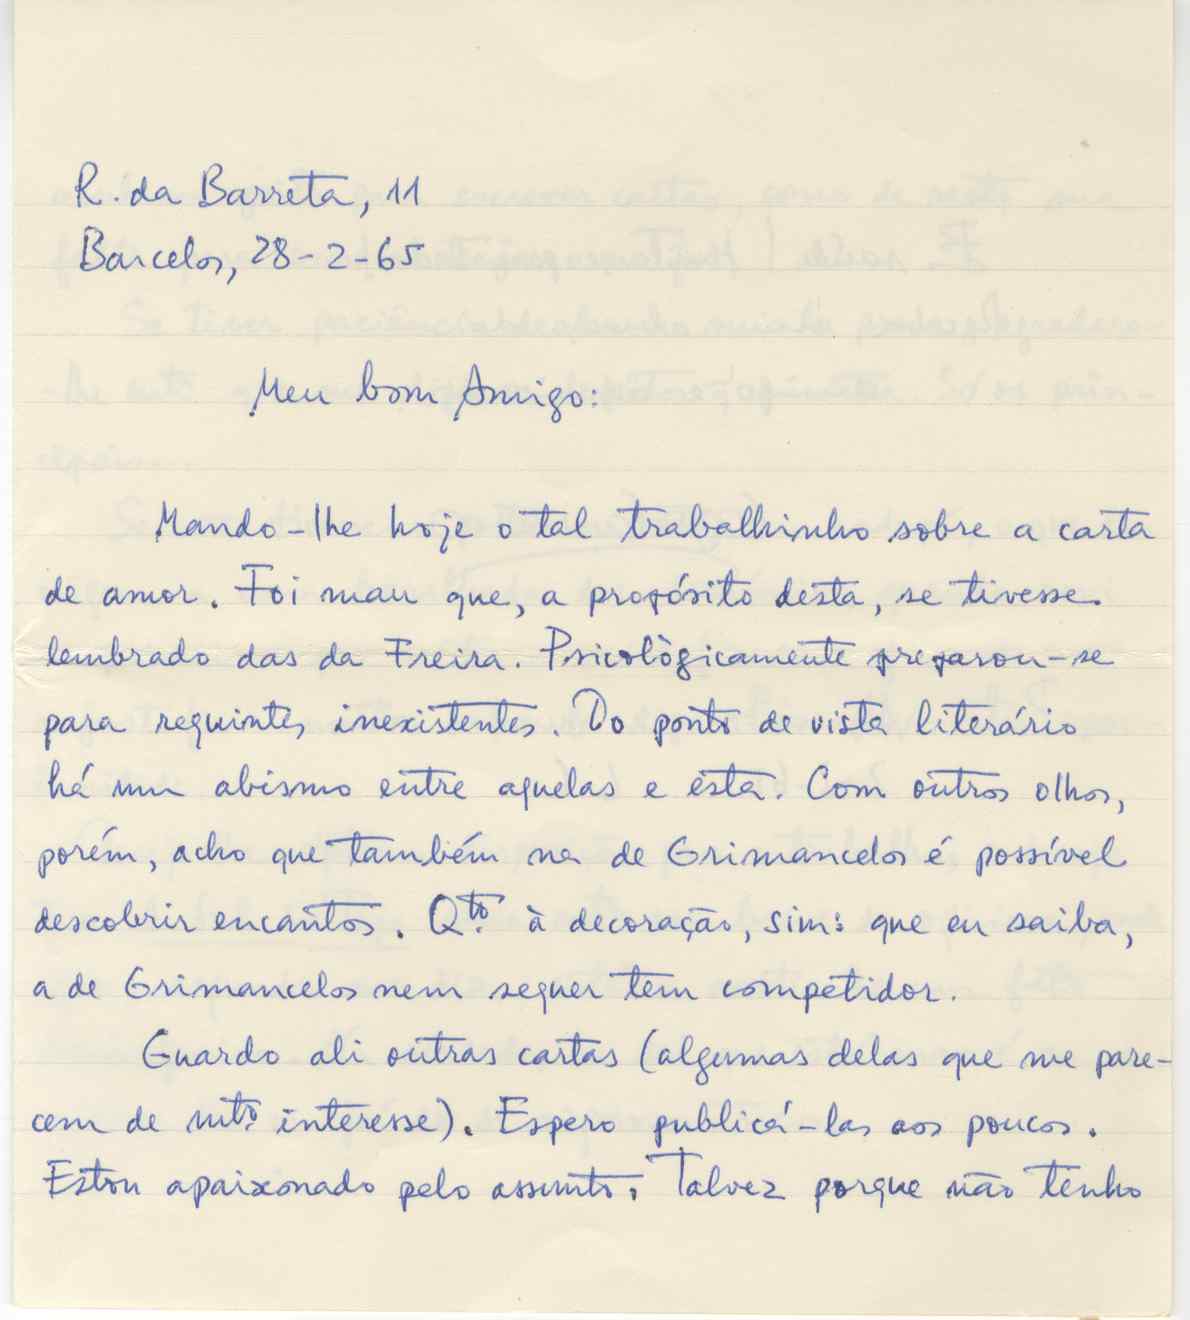 R. da Barreta, 11
Barcelos, 28-2-65
Meu bom Amigo:
Mando-lhe hoje o tal trabalhinho sobre a carta
de amor. Foi mau que, a propósito desta, se tivesse
lembrado das da Freira. Psicològicamente preparou-se
para requintes inexistentes. Do ponto de vista literário
há um abismo entre aquelas e esta. Com outros olhos,
porém, acho que também na de Grimancelos é possível
descobrir encantos. Qto. à decoração, sim: que eu saiba,
a de Grimancelos nem sequer tem competidor.
Guardo ali outras cartas (algumas delas que me pare-
cem de mto. interesse). Espero publicá-las aos poucos.
Estou apaixonado pelo assunto. Talvez porque não tenho